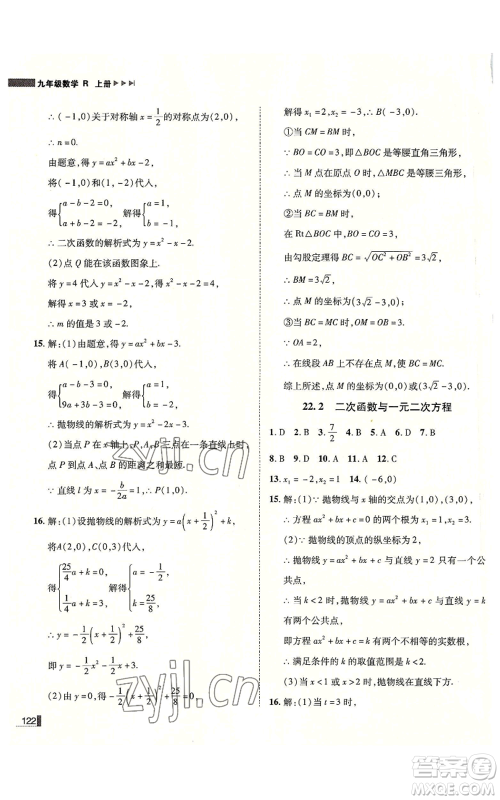 九年级数学 R 上册
∴(-1,0)关于对称轴x=1/2的对称点为(2,0),
∴n=0.
由题意,得y=ax²+bx-2.
将(-1,0)和(2,0)代入,
得{a-b-2=0, a+b-2=-2. 解得{a=1, b=-1.
∴二次函数的解析式为y=x²-x-2.
(2)点Q能在该函数图象上.
将y=4代入y=x²-x-2,得x²-x-2=4.
解得x=3或x=-2.
∴m的值是3或-2.
15. 解:(1)由题意,得y=ax²+bx-3.
将A(-1,0),B(3,0)代入,
得{a-b-3=0, 9a+3b-3=0. 解得{a=1, b=-2.
∴抛物线的解析式为y=x²-2x-3.
(2)当点P在x轴上,P,A,B三点在一条直线上时,
点P到点A、点B的距离之和最短.
∵直线l为x=-b/2a=1,∴P(1,0).
16. 解:(1)设抛物线的解析式为y=a(x+1/2)²+k.
将A(2,0),C(0,3)代入,
得{25/4a+k=0, 1/4a+k=3. 解得{a=-1/2, k=25/8.
∴y=-1/2(x+1/2)²+25/8,
即y=-1/2x²-1/2x+3.
(2)由y=0,得-1/2(x+1/2)²+25/8=0.
122
解得x₁=2,x₂=-3.∴B(-3,0).
①当CM=BM时,
∵BO=CO=3,即△BOC是等腰直角三角形,
∴当点M在原点O时,△MBC是等腰三角形.
∴点M的坐标为(0,0).
②当BC=BM时,
在Rt△BOC中,BO=CO=3,
由勾股定理得BC=√OC²+OB²=3√2,
∴BM=3√2.
∴点M的坐标为(3√2-3,0).
∵OA=2,
∴在线段OA上不存在BC=MC.
综上所述,点M的坐标为(0,0)或(3√2-3,0).
22.2 二次函数与一元二次方程
1. D 2. B 3. 7/2 4. B 5. A 6. D 7. B
8. B 9. B 10. D 11. A 12. C
13. x₁=-2,x₂=1 14. (-6,0)
15. 解:(1)∵抛物线与x轴的交点为(1,0),(3,0),
∴方程ax²+bx+c=0的根为x₁=1,x₂=3.
(2)∵抛物线的顶点的纵坐标为2,
∴抛物线y=ax²+bx+c与直线y=2只有一个公
共点,
∴当k<2时,抛物线y=ax²+bx+c与直线y=k
有两个公共点,
即方程ax²+bx+c=k有两个不相等的实数根.
∴k的取值范围为k<2.
16. 解:(1)∵y=x²-(2m-1)x+m²-m,
zyjl.cn
zyjl.cn